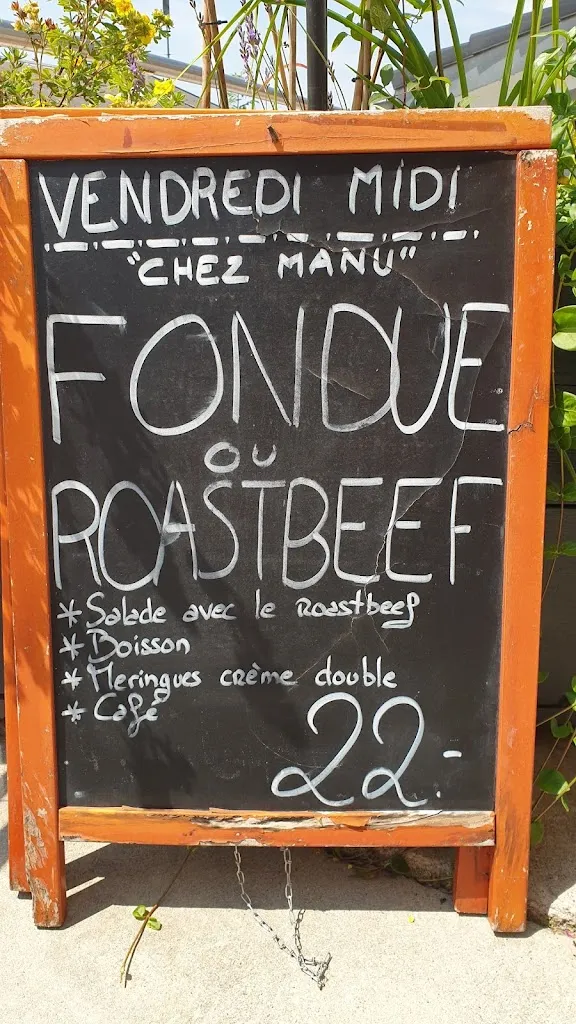 VENDREDI MIDI
"CHEZ MANU"
FONDUE
OU
ROASTBEEF
* Salade avec le Roastbeef
* Boisson
* Meringues crème double
* Café
22.-